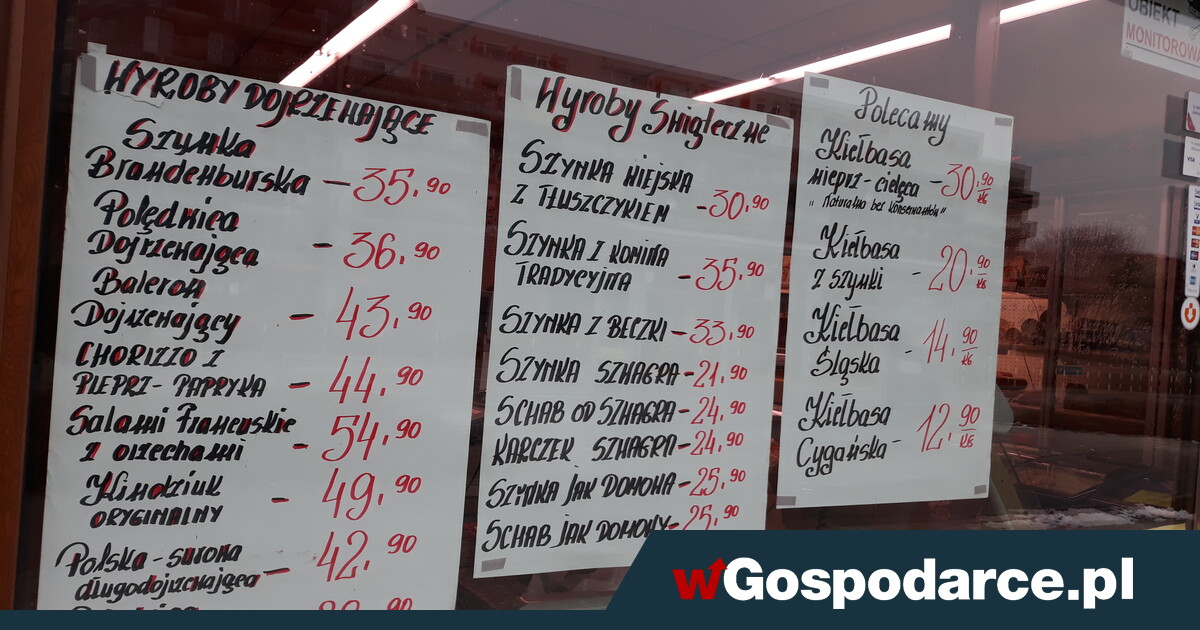 WYROBY DOJRZEWAJĄCE
Szynka
Brandenburska - 35,90
Polędwica
Dojrzewająca - 36,90
Baleron
Dojrzewający - 43,90
CHORIZZO Z
PIEPRZ- PAPRYKA - 44,90
Salami Francuskie
z orzechami - 54,90
Kindziuk
ORYGINALNY - 49,90
Polska - surowa
długodojrzewająca - 42,90
Wyroby Świąteczne
SZYNKA WIEJSKA
Z TŁUSZCZYKIEM - 30,90
SZYNKA Z KOMINA
TRADYCYJNA - 35,90
SZYNKA Z BECZKI - 33,90
SZYNKA SZWAGRA - 21,90
SCHAB OD SZWAGRA - 24,90
KARCZEK SZWAGRA - 24,90
SZYNKA JAK DOMOWA - 25,90
SCHAB JAK DOMOWY - 25,90
Polecamy
Kiełbasa
wieprz - cielęca - 30,90 KG
"Naturalna bez konserwantów"
Kiełbasa
z szynki - 20,90 KG
Kiełbasa
Śląska - 14,90 KG
Kiełbasa
Cygańska - 12,90 KG
OBIEKT
MONITOROWA
VISA
wGospodarce.pl